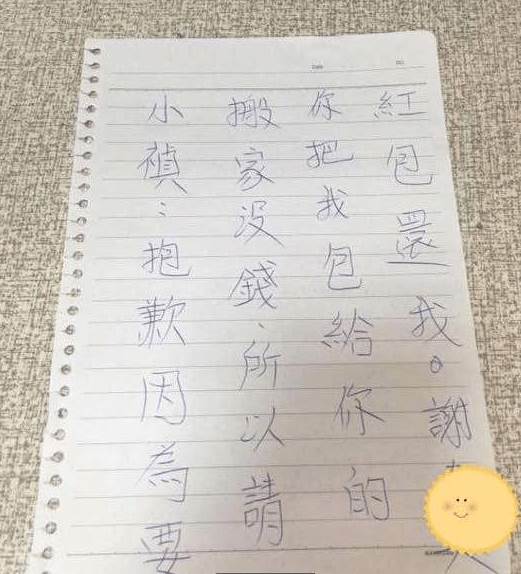 小禎：抱歉因為要
搬家沒錢、所以請
你把我包給你的
紅包還我。謝